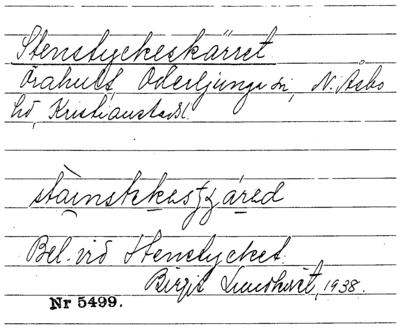 Stenstyckeskärret
Örahult, Oderljunga sn, N. Åsbo
hd, Kristianstads l.
Bel. vid Stenstycket.
Birgit Lundkvist, 1938.
Nr 5499.